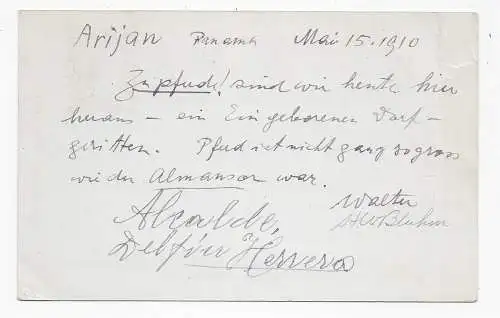 Arijan Panama Mai 15. 1910
Zu pfude! sind wir heute hier
heraus – ein Eingeborenen Dorf –
geritten. Pferd ist nicht ganz so gross
wie der Almansor war.
Walter
Alcalde,
Delfin Herrera